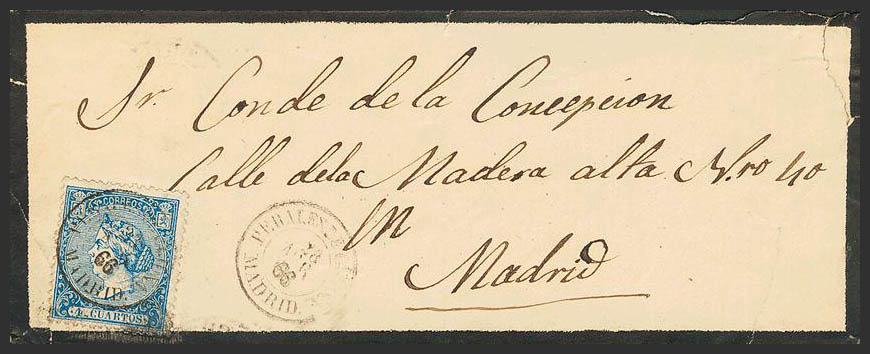 Sr. Conde de la Concepcion
Calle de la Madera alta N.ro 40
en
Madrid
CORREOS
4 CUARTOS
66
MADRID.
PERALES
18
66
MADRID.